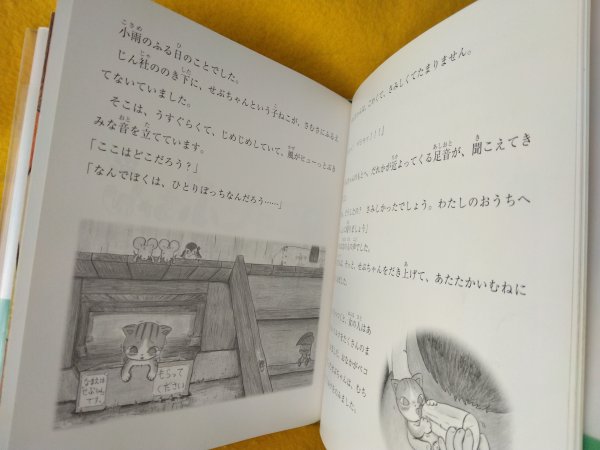 小雨のふる日のことでした。
じん社ののき下に、せぷちゃんという子ねこが、さむさにふるえ
てないていました。
そこは、うすぐらくて、じめじめしていて、風がヒューっとぶき
みな音を立てています。
「ここはどこだろう?」
「なんでぼくは、ひとりぼっちなんだろう……」
もらって
ください
なまえは
です。
こわくて、さみしくてたまりません。
だれかが近よってくる足音が、聞こえてき
さみしかったでしょう。わたしのおうちへ
りましょう」
でした。
そっと、せぷちゃんをだき上げて、あたたかいむねに
女の人はあ
たくさんのま
おなかがペコ